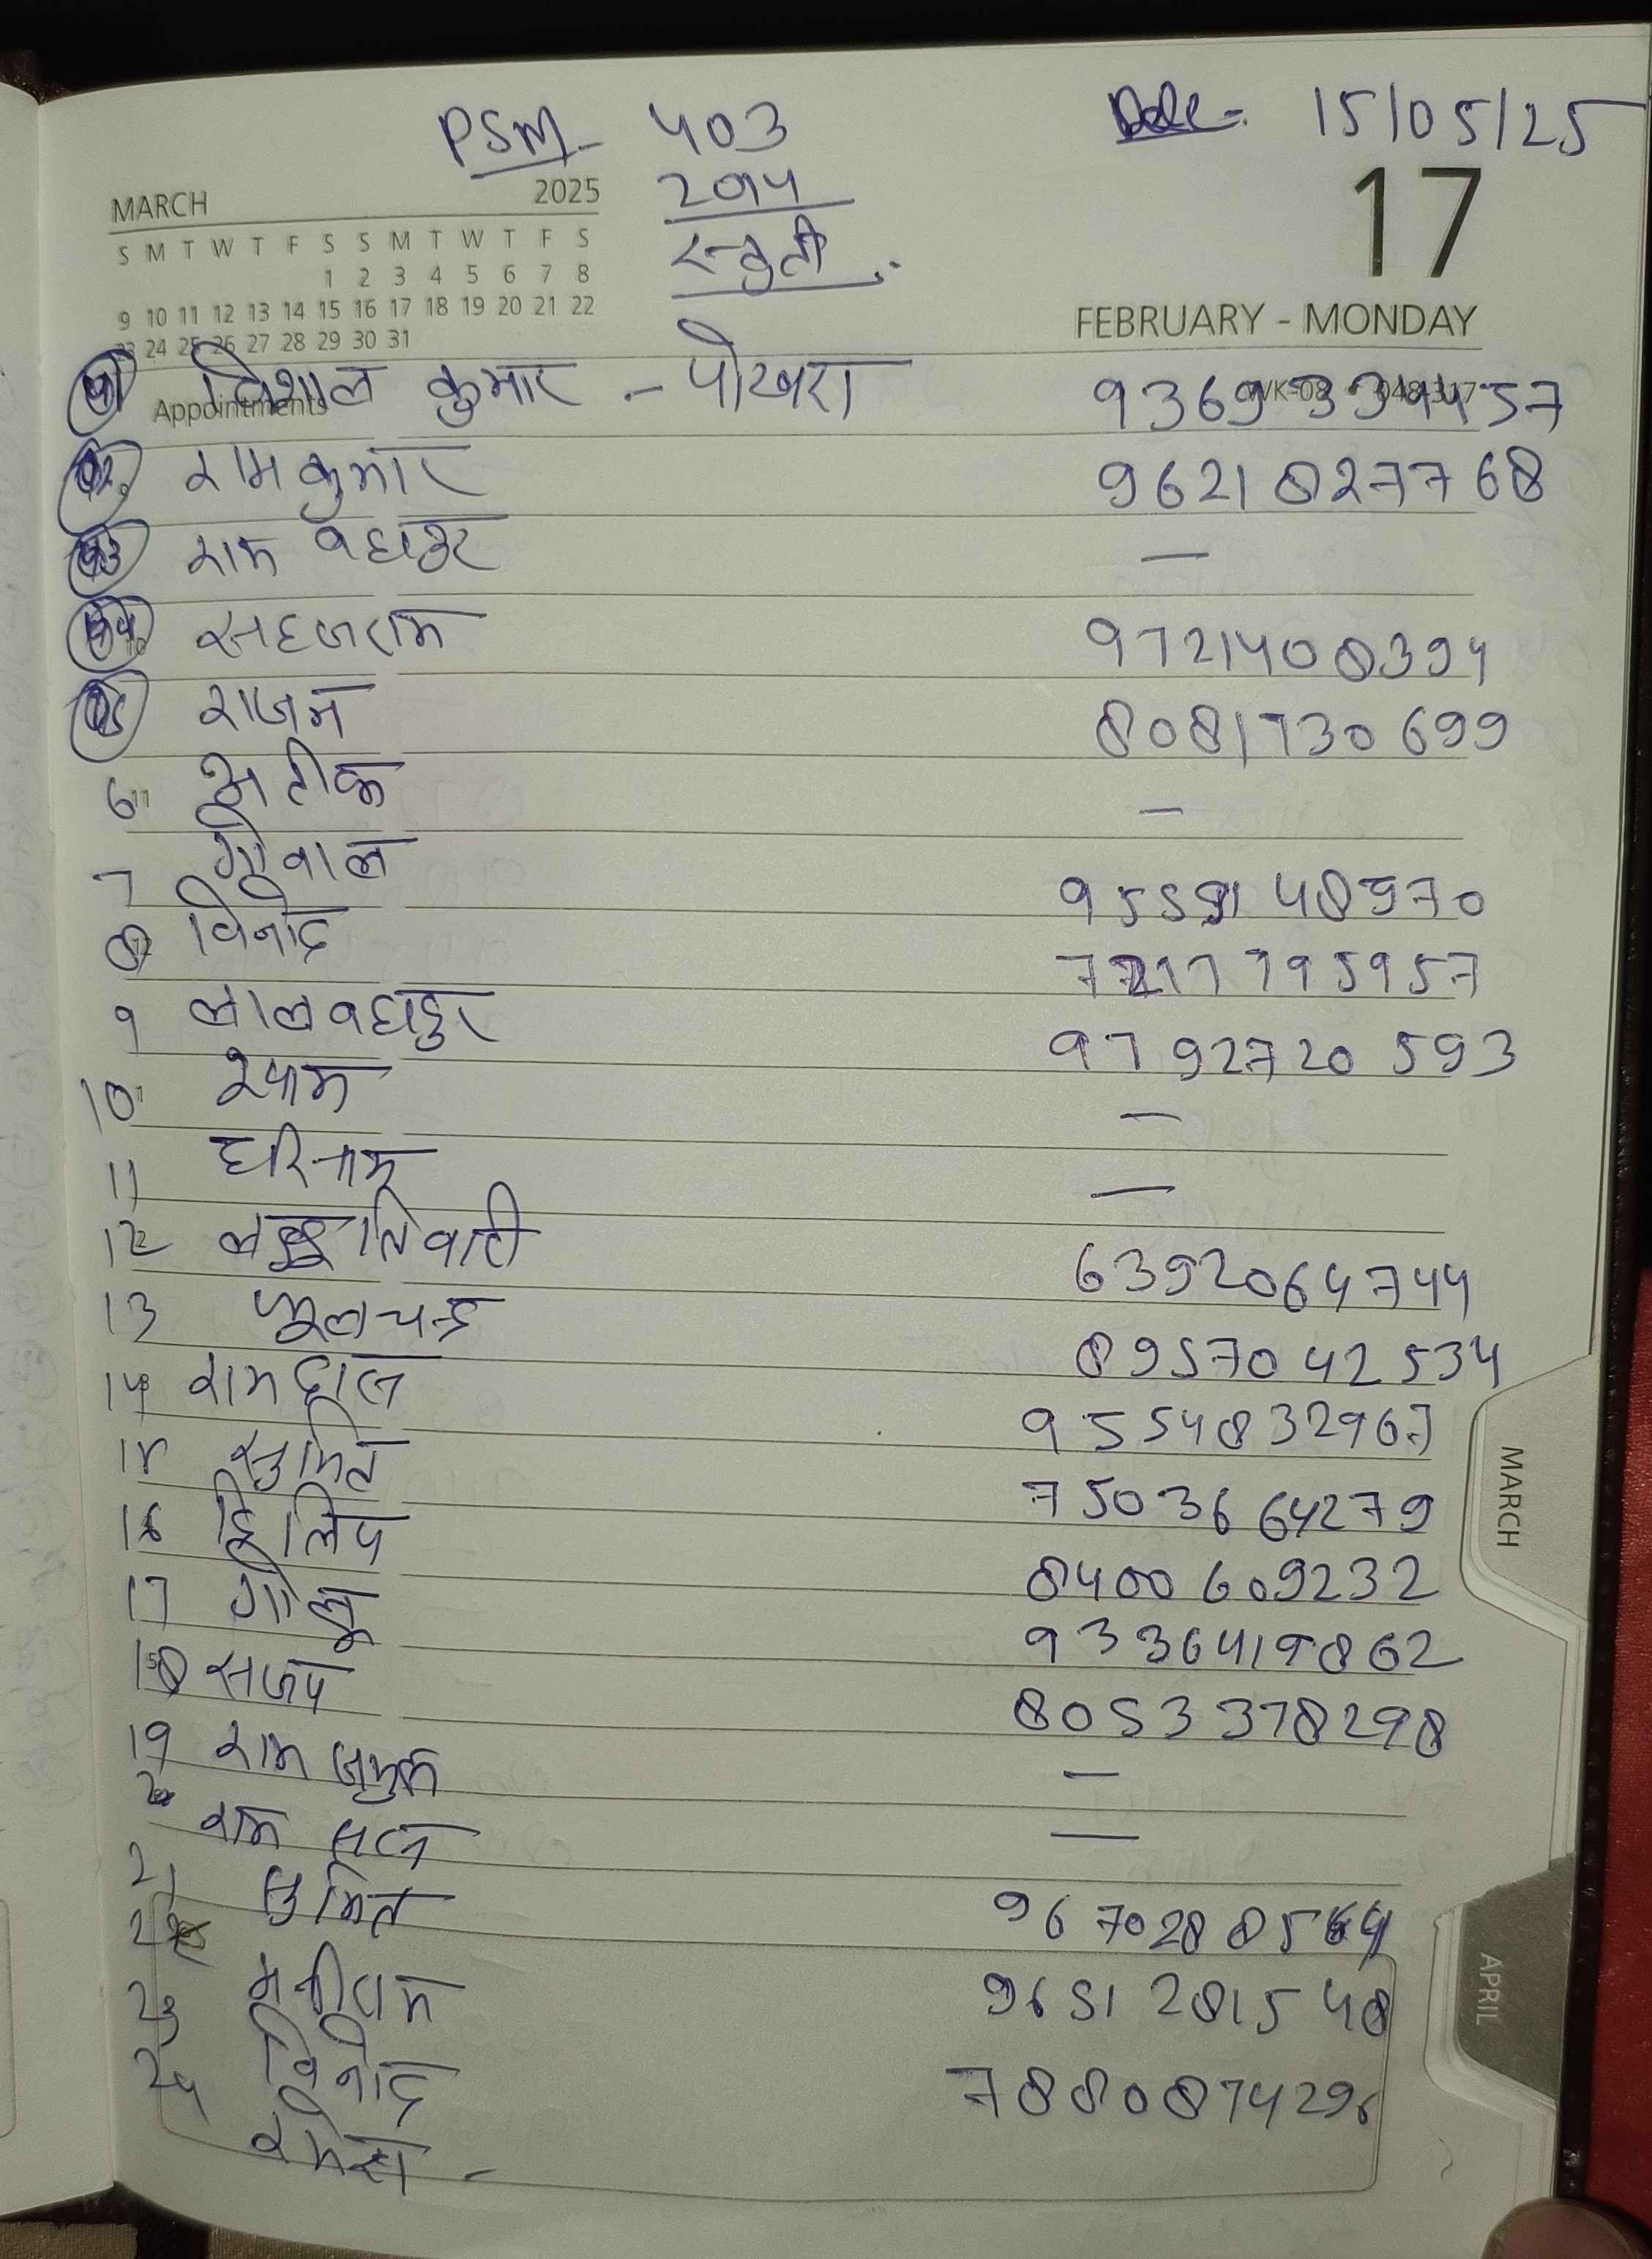 PSM - 403
Date - 15/05/25
2014
स्तुती
MARCH 2025
S M T W T F S S M T W T F S
1 2 3 4 5 6 7 8
9 10 11 12 13 14 15 16 17 18 19 20 21 22
23 24 25 26 27 28 29 30 31
17
FEBRUARY - MONDAY
Appointments
WK-08
01 विशाल कुमार - पोखरा
02 रामकुमार 9621827768
03 राम बहादुर —
04 सहजराम 9721408394
05 राजन 8081730699
6 अतीक —
7 गोपाल 9559148970
8 विनोद
9 लालबहादुर 9792720593
10 श्याम —
11 हरिनाम —
12 तिवारी 6392064744
13 फूलचन्द्र 8957042534
14 राम 9554832967
15 सुमित 7503664279
16 दिलिप 8400609232
17 गोलू 9336419862
18 सजय 8053378298
19 राम —
20 राम —
21 सुमित 9670288564
22 मनीराम 9651281548
23 विनोद 7880874296
24 रमेश -
MARCH
APRIL